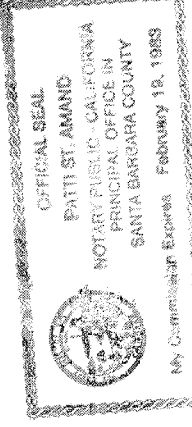 OFFICIAL SEAL
PATTI ST. AMAND
NOTARY PUBLIC - CALIFORNIA
PRINCIPAL OFFICE IN
SANTA BARBARA COUNTY
My Commission Expires February 19, 1983